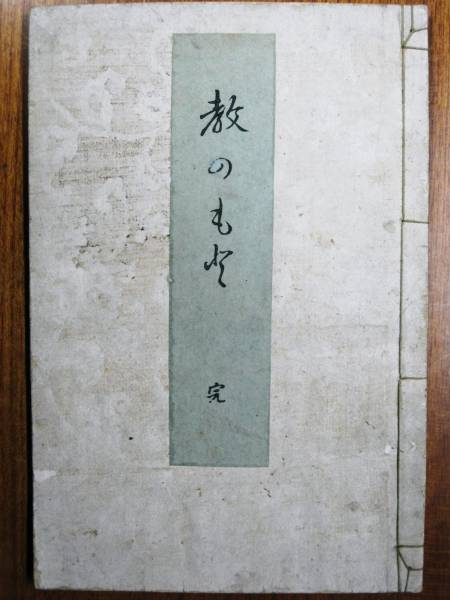 教のもと
完